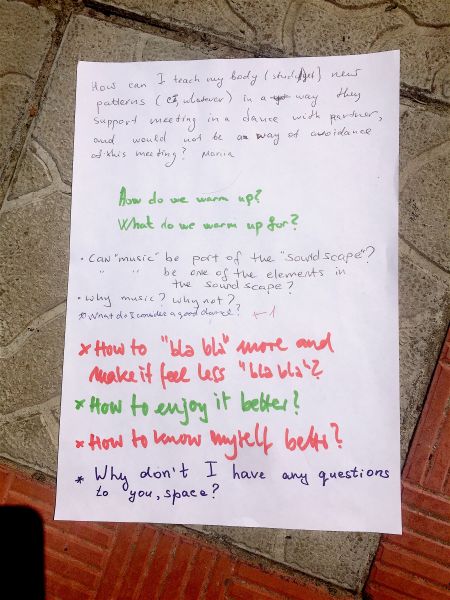 How can I teach my body (students) new
patterns (CI, whatever) in a way they
support meeting in a dance with partner,
and would not be a way of avoidance
of this meeting? Maria
How do we warm up?
What do we warm up for?
• Can "music" be part of the "soundscape"?
" " be one of the elements in
the soundscape?
• Why music? Why not?
* What do I consider a good dance? +1
* How to "bla bla" more and
make it feel less "bla bla"?
* How to enjoy it better?
* How to know myself better?
* Why don't I have any questions
to you, space?